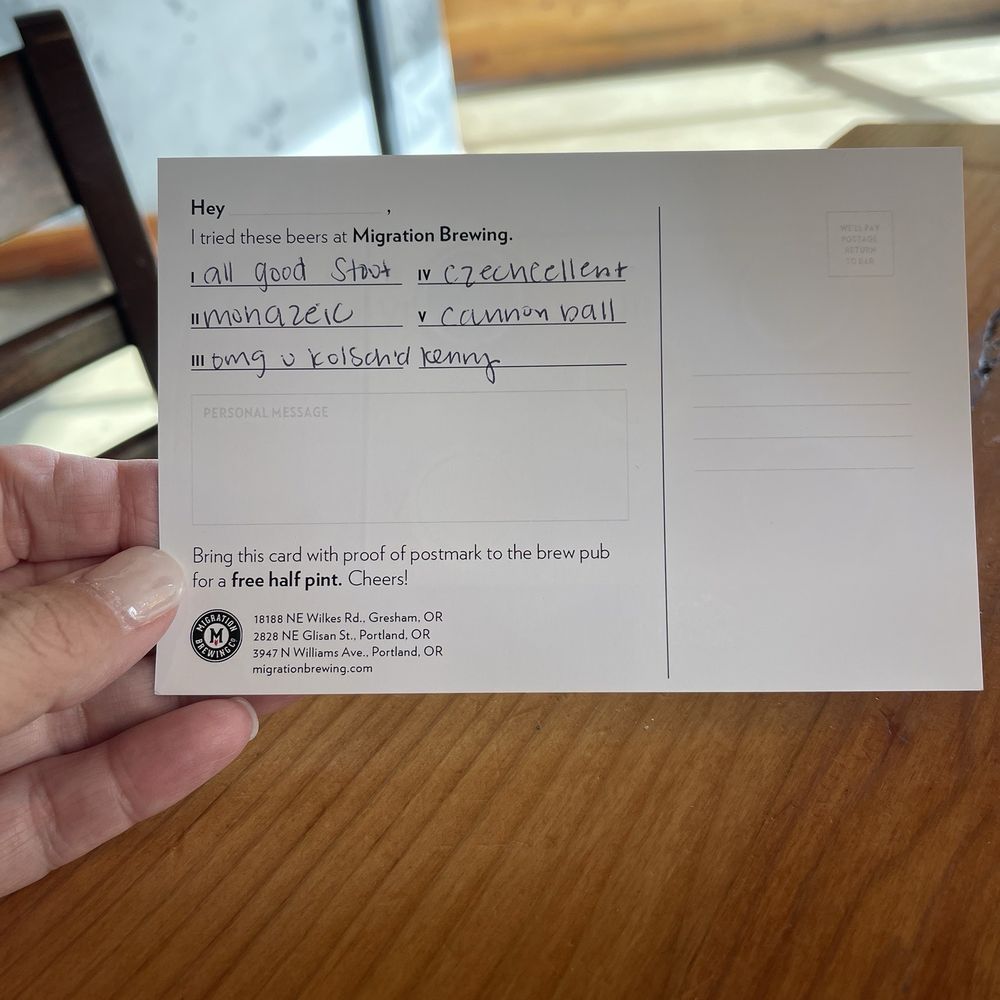 Hey ,
I tried these beers at Migration Brewing.
I all good Stout IV czechcellent
II monazeic V cannon ball
III omg u kolsch'd kenny
PERSONAL MESSAGE
Bring this card with proof of postmark to the brew pub
for a free half pint. Cheers!
MIGRATION
M
BREWING CO
18188 NE Wilkes Rd., Gresham, OR
2828 NE Glisan St., Portland, OR
3947 N Williams Ave., Portland, OR
migrationbrewing.com
WE'LL PAY
POSTAGE
RETURN
TO BAR